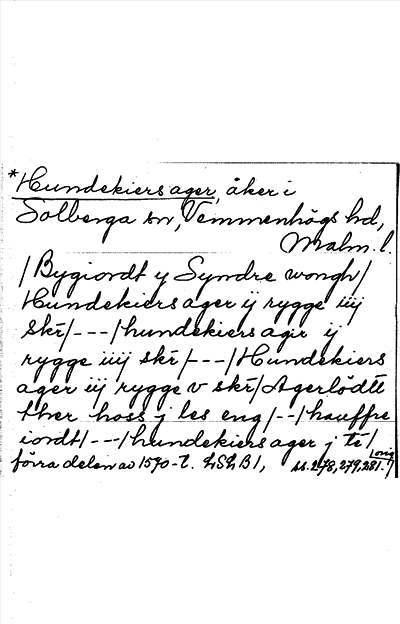 *Hundekiersager, åker i
Solberga sn, Vemmenhögs hd,
Malm. l.
/Bygiordt y Syndre wongh/
Hundekiersager ij rygge iiij
skr/---/hundekiersagir ij
rygge iiij skr/---/Hundekiers
ager iij rygge v skr/Agerlödtt
ther hoss j les eng/--/hauffre
iordt/---/hundekiersager j
förra delen av 1570-t. LSLB1, ss. 278, 279, 281./